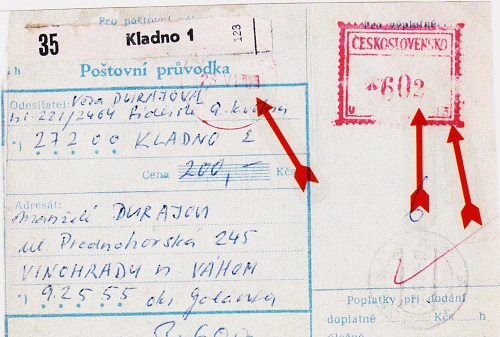 Pro poštovní
Pro doplatné
35 Kladno 1 123
ČESKOSLOVENSKO
602
h
Poštovní průvodka
Odesílatel: Věra DURAJOVÁ
221/2464 Sídliště
272 00 KLADNO 2
Cena 200,- Kčs
Adresát:
Manželé DURAJOVI
ul Prednohorská 245
VINOHRADY n VÁHOM
925 55 okr Galanta
6
Poplatky při dodání
doplatné Kčs h